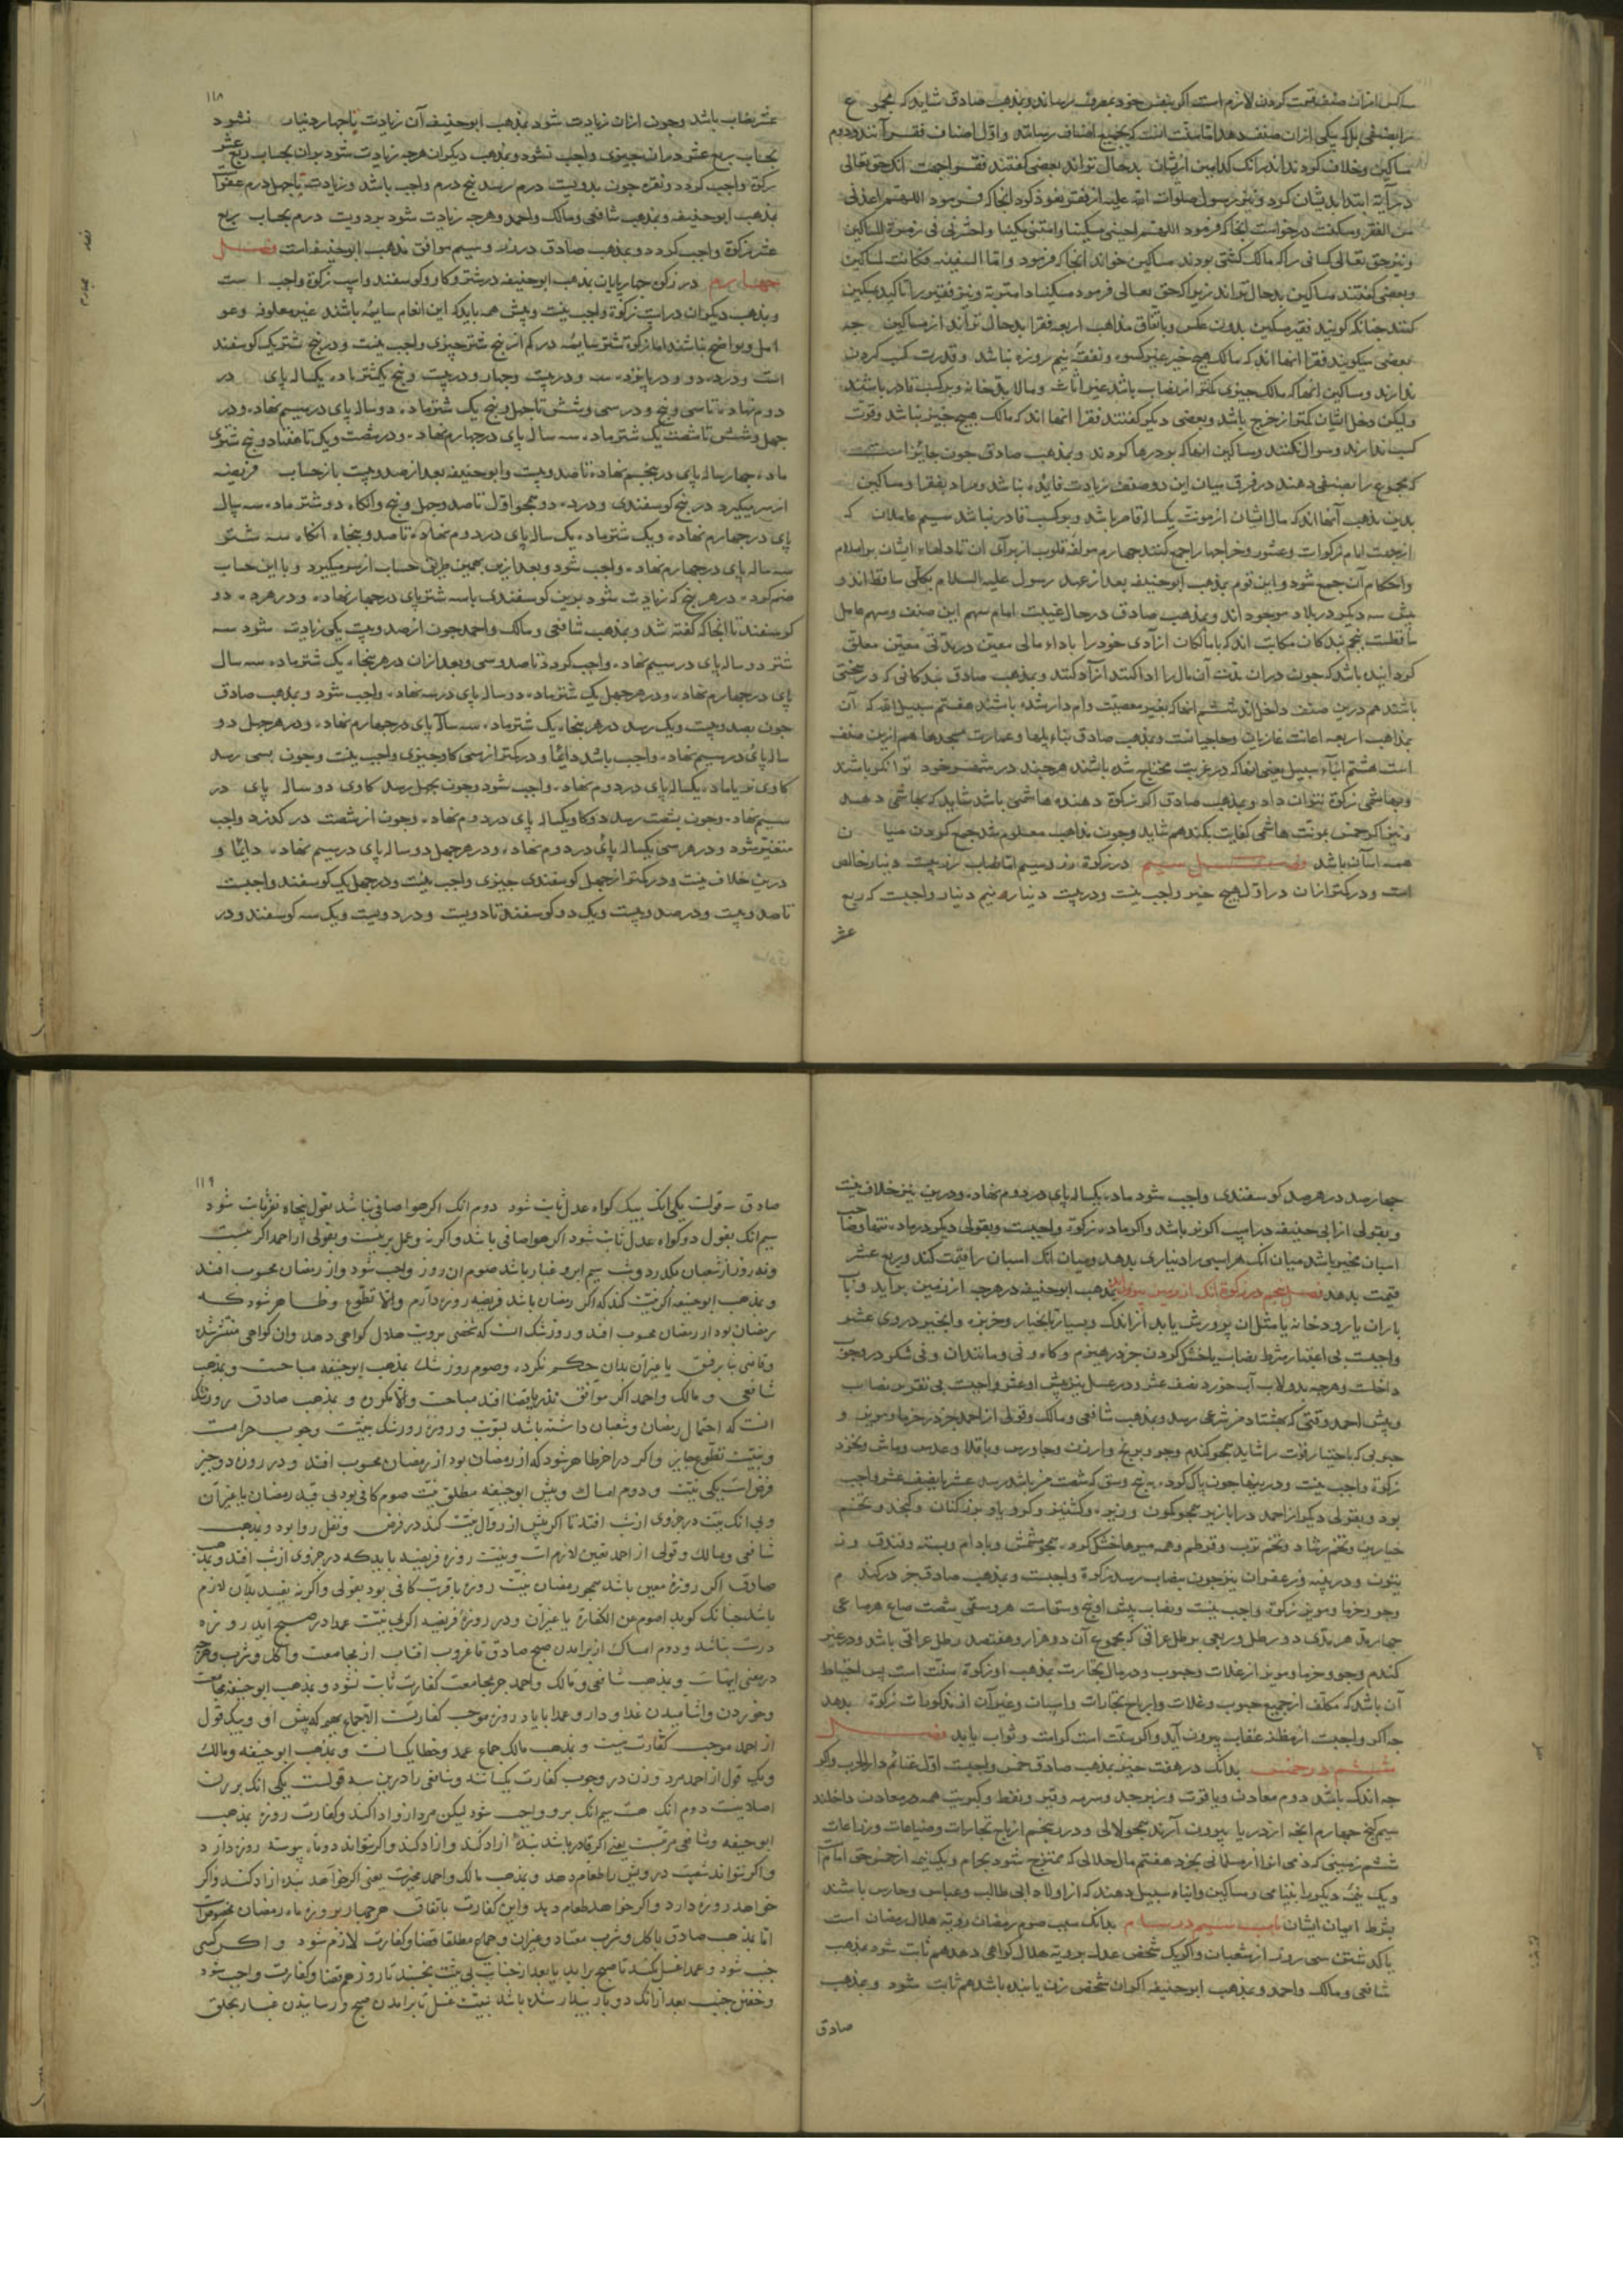 ساکن ازان صنف قسمت کردن لازم است اگر بنفس خود بمصرف رساند و بمذهب صادق شاید که مجموع
را بصنفی بلکه بیکی ازان صنف دهد اما سنت آنست که بجمیع اصناف رساند و اول اصناف فقراآنند و دوم
مساکین و خلاف کرده‌اند در آنک کدامین ازیشان بدحال تراند بعضی گفتند فقرا جهت آنک حق تعالی
در آیة ابتدا بدیشان کرد و نیز رسول صلوات الله علیه از فقر تعوذ کرد آنجا که فرمود اللهم اعذنی
من الفقر و مسکنت درخواست آنجا که فرمود اللهم احینی مسکینا و امتنی مسکینا و احشرنی فی زمرة المساکین
و نیز حق تعالی کسانی را که مالک کشتی بودند مساکین خواند آنجا که فرمود و اما السفینه فکانت لمساکین
و بعضی گفتند مساکین بدحال تراند زیرا که حق تعالی فرمود مسکینا ذا متربة و نیز فقیر را تاکید بمسکین
کنند چنانکه گویند فقیر مسکین بدون عکس و باتفاق مذاهب اربعه فقرا بدحال تراند از مساکین جه
بعضی میگویند فقرا آنها اند که مالک هیچ چیز غیر کسوه و نفقه نیم روزه نباشد و قدرت کسب کردن
ندارند و مساکین آنها که مالک چیزی کمتر از نصاب باشد غیر اثاث و مالابد خانه و بر کسب قادر باشند
ولیکن دخل ایشان کمتر از خرج باشد و بعضی دیگر گفتند فقرا آنها اند که مالک هیچ چیز نباشد و قوت
کسب ندارند و سوال نکنند و مساکین آنها که بودرها کردند و بمذهب صادق چون جایز است
که مجموع را بصنفی دهند در فرق میان این دو صنف زیادت فایده نباشد و مراد بفقرا و مساکین
بدین مذهب آنها اند که مال ایشان از مونت یکساله قاصر باشد و بر کسب قادر نباشد سیم عاملان که
از جهت امام زکوات و عشور و خراجها را جمع کنند چهارم مولفه قلوب از برای آن تا دلهاء ایشان بر اسلام
و احکام آن جمع شود و این قوم بمذهب ابوحنیفه بعد از عهد رسول علیه السلام بکلی ساقط اند و
پیش سه دیگر در بلاد موجود اند و بمذهب صادق در حال غیبت امام سهم این صنف و سهم عامل
ساقطست پنجم بندکان مکاتب اند که با مالکان آزادی خود را باداء مالی معین در مدتی معین معلق
کردانیده باشد که چون دران مدت آن مال را ادا کنند آزاد کنند و بمذهب صادق بندکانی که در سختی
باشند هم درین صنف داخل اند ششم آنها که بغیر معصیت وام دار شده باشند هفتم سبیل الله که آن
بمذاهب اربعه اعانت غازیان و حاجیانست و بمذهب صادق بناء پلها و عمارت مسجدها هم ازین صنف
است هشتم ابناء سبیل یعنی آنها که در غربت محتاج شده باشند هرچند در شهر خود توانگر باشند
و بهاشمی زکوة نتوان داد و بمذهب صادق اگر زکوة دهنده هاشمی باشد شاید که بهاشمی دهد
و نیز اگر خمس بمونت هاشمی کفایت نکند هم شاید و چون مذاهب معلوم شد جمع کردن میان
همه آسان باشد فصل سیم در زکوة زر و سیم اما نصاب زر بیست دینار خالص
است و در کمتر ازان در اول هیچ چیز واجب نیست و در بیست دینار نیم دینار واجبست که ربع
عشر
١١٨
عشر نصاب باشد و چون ازان زیادت شود بمذهب ابوحنیفه آن زیادت تا چهار دینار نشود
بحساب ربع عشر دران چیزی واجب نشود و بمذهب دیگران هرچه زیادت شود بران بحساب ربع عشر
زکوة واجب کردد و نقره چون بدویست درم رسد پنج درم واجب باشد و زیادت تا چهل درم عفوست
بمذهب ابوحنیفه و بمذهب شافعی و مالک و احمد و هرچه زیادت شود بر دویست درم بحساب ربع
عشر زکوة واجب کردد و بمذهب صادق در زر و سیم موافق مذهب ابوحنیفه است فصل
چهارم در زکوة چهارپایان بمذهب ابوحنیفه در شتر و کاو و کوسفند و اسپ زکوة واجب است
و بمذهب دیگران در اسپ زکوة واجب نیست و پیش همه باید که این انعام سایمه باشند غیر معلوفه و عو
امل و نواضح نباشند اما زکوة شتر سایمه در کم از پنج شتر چیزی واجب نیست و در پنج شتر یک کوسفند
است و در ده دو و در پانزده سه و در بیست چهار و در بیست و پنج یک شتر ماده یکساله پای در
دوم نهاده تا سی و پنج و در سی و شش تا چهل و پنج یک شتر ماده دو ساله پای در سیم نهاده و در
چهل و شش تا شصت یک شتر ماده سه ساله پای در چهارم نهاده و در شصت و یک تا هفتاد و پنج شتری
ماده چهار ساله پای در پنجم نهاده تا صد و بیست و ابوحنیفه بعد از صد و بیست باز حساب فریضه
از سر میگیرد در پنج کوسفندی و در ده دو همچو اول تا صد و چهل و پنج و آنکاه دو شتر ماده سه ساله
پای در چهارم نهاده و یک شتر ماده یک ساله پای در دوم نهاده تا صد و پنجاه آنکاه سه شتر
سه ساله پای در چهارم نهاده واجب شود و بعد ازین بهمین طریق حساب از سر میگیرد و با این حساب
ضم کرده در هر پنج که زیادت شود برین کوسفندی با سه شتر پای در چهار نهاده و در هر ده دو
کوسفند تا آنجا که گفته شد و بمذهب شافعی و مالک و احمد چون از صد و بیست یکی زیادت شود سه
شتر دو ساله پای در سیم نهاده واجب کردد تا صد و سی و بعد ازان در هر پنجاه یک شتر ماده سه سال
پای در چهارم نهاده و در هر چهل یک شتر ماده دو ساله پای در سه نهاده واجب شود و بمذهب صادق
چون بصد و بیست و یک رسد در هر پنجاه یک شتر ماده سه ساله پای در چهارم نهاده و در هر چهل دو
ساله پای در سیم نهاده واجب باشد دایما و در کمتر از سی کاو چیزی واجب نیست و چون بسی رسد
کاوی نر یا ماده یکساله پای در دوم نهاده واجب شود و چون بچهل رسد کاوی دو ساله پای در
سیم نهاده و چون بشصت رسد دو کاو یکساله پای در دوم نهاده و چون از شصت در کذرد واجب
متغیر شود و در هر سی یکساله پای در دوم نهاده و در هر چهل دو ساله پای در سیم نهاده دایما و
درین خلاف نیست و در کمتر از چهل کوسفندی چیزی واجب نیست و در چهل یک کوسفند واجبست
تا صد و بیست و در صد و بیست و یک دو کوسفند تا دویست و در دویست و یک سه کوسفند و در
چهار صد در هر صد کوسفندی واجب شود ماده یکساله پای در دوم نهاده و درین نیز خلاف نیست
و بقولی از ابی حنیفه در اسپ اگر نر باشد و اگر ماده زکوة واجبست و بقولی دیگر در ماده تنها و صاحب
اسبان مخیر باشد میان آنک هر اسبی را دیناری بدهد و میان آنک اسبان را قیمت کند و ربع عشر
قیمت بدهد فصل پنجم در زکوة آنک از زمین بیرون آید بمذهب ابوحنیفه در هرچه از زمین برآید و بآب
باران یا رودخانه یا مثل آن پرورش یابد از اندک و بسیار تا بخیار و خربزه و انجیر در وی عشر
واجبست بی اعتبار شرط نصاب یا خشک کردن جز در هیزم و کاه و نی و مانند آن و نی شکر در وجوب
داخلست و هرچه بدولاب آب خورد نصف عشر و در عسل نیز پیش او عشر واجبست بی تقدیر نصاب
زکوة واجب نیست و در بینها چون پاک کرده به پنج وسق که شصت من باشد رسد عشر یا نصف عشر واجب
کندم و جو و خرما و مویز از غلات و حبوب و در مال تجارت بمذهب او زکوة سنت است پس احتیاط
آن باشد که مکلف از جمیع حبوب و غلات و ارباح تجارات و اسپان و غیر آن از مذکورات زکوة بدهد
چه اگر واجبست از مظنه عقاب بیرون آید و اگر سنت است کرامت و ثواب یابد فصل
ششم در خمس بدانک در هفت چیز بمذهب صادق خمس واجبست اول غنائم دار الحرب و اگر
چه اندک باشد دوم معادن و یاقوت و زبرجد و سرمه و قیر و نفط و کبریت همه در معادن داخلند
سیم کنج چهارم آنچه از دریا بیرون آرند همچو لالی و درر پنجم ارباح تجارات و صناعات و زراعات
ششم زمینی که ذمی انرا از مسلمانی بخرد هفتم مال حلالی که ممتزج شود بحرام و یک نیمه از خمس حق امام است
و یک نیمه دیگر را بیتامی و مساکین و ابناء سبیل دهند که از اولاد ابی طالب و عباس و حارس باشند
بشرط ایمان ایشان باب سیم در صیام بدانک سبب صوم رمضان رویة هلال رمضان است
یا کذشتن سی روز از شعبان و اگر یک شخص عدل برویة هلال کواهی دهد هم ثابت شود بمذهب
شافعی و مالک و احمد و بمذهب ابوحنیفه اگر ان شخص زن یا بنده باشد هم ثابت شود و بمذهب
صادق
١١٩
صادق سه قولست یکی آنک بیک کواه عدل ثابت شود دوم آنک اگر هوا صافی نباشد بقول پنجاه نفر ثابت شود
سیم آنک بقول دو کواه عدل ثابت شود اگر هوا صافی باشد و اگر نه و عمل برینست و بقولی از احمد اگر بیست
و نه روز از شعبان بگذرد و شب سیم ابر و غبار باشد صوم آن روز واجب شود و از رمضان محسوب افتد
و بمذهب ابوحنیفه اگر نیت کند که اگر رمضان باشد فریضه روزه دارم و الا تطوع و ظاهر شود که
رمضان بود از رمضان محسوب افتد و روز شک آنست که شخصی برویت هلال کواهی دهد و آن کواهی منتشر شده
و قاضی بنا بر فسق یا غیر آن بدان حکم نکرده و صوم روز شک بمذهب ابوحنیفه مباحست و بمذهب
شافعی و مالک و احمد اگر موافق نذر یا قضا افتد مباحست و الا مکروه و بمذهب صادق روز شک
آنست که احتمال رمضان و شعبان داشته باشد بنوبت و روزه روز شک بنیت وجوب حرامست
و بنیت تطوع جایز و اگر در آخر ظاهر شود که از رمضان بود از رمضان محسوب افتد و در روزه دو چیز
فرض است یکی نیت و دوم امساک و پیش ابوحنیفه مطلق نیت صوم کافی بود بی قید رمضان یا غیر آن
شافعی و مالک و قولی از احمد تعیین لازم است و نیت روزه فریضه باید که در جزوی از شب افتد و بمذهب
صادق اگر روزه معین باشد همچو رمضان نیت روزه با قربت کافی بود بقولی و اگر نه تقیید بدان لازم
باشد چنانک کوید اصوم عن الکفارة یا غیر آن و در روزه فریضه اگر بی نیت عمدا در صبح آید روزه
درست نباشد و دوم امساک از برآمدن صبح صادق تا غروب افتاب از مجامعت و اکل و شرب و هرچه
در معنی اینهاست و بمذهب شافعی و مالک و احمد جز بمجامعت کفارت ثابت نشود و بمذهب ابوحنیفه مجامعت
و خوردن و اشامیدن غدا و دارو عمدا با یاد روزه موجب کفارتست
از احمد موجب کفارت نیست و بمذهب مالک جماع عمد و خطا یکسانست و بمذهب ابوحنیفه و مالک
و یک قول از احمد مرد و زن در وجوب کفارت یکسانند و شافعی را درین سه قولست یکی آنک بر زن
اصلا نیست دوم آنک هست سیم آنک برو واجب شود لیکن مرد ازو ادا کند و کفارت روزه بمذهب
ابوحنیفه و شافعی مرتبست یعنی اگر قادر باشد بنده آزاد کند و اگر نتواند دو ماه پیوسته روزه دارد
و اگر نتواند شصت درویش را طعام دهد و بمذهب مالک و احمد مخیرست یعنی اگر خواهد بنده آزاد کند و اگر
خواهد روزه دارد و اگر خواهد طعام دهد و این کفارت باتفاق هر چهار بروزه ماه رمضان مخصوص است
اما بمذهب صادق باکل و شرب معتاد و غیر آن و جماع مطلقا قضا و کفارت لازم شود و اگر کسی
جنب شود و عمدا غسل نکند تا صبح براید یا بعد از جنابت بی نیت بخسبد تا روز هم قضا و کفارت واجب شود
و خفتن جنب بعد از آنک دو بار بیدار شده باشد نیت غسل تا برآمدن صبح و رسانیدن غبار بحلق